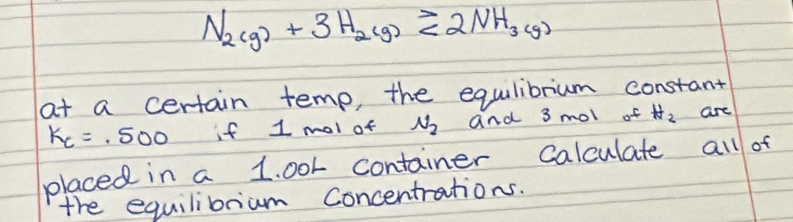 N₂(g) + 3H₂(g) ⇄ 2NH₃(g)
at a certain temp, the equilibrium constant
Kc = .500 if 1 mol of N₂ and 3 mol of H₂ are
placed in a 1.00L container Calculate all of
the equilibrium Concentrations.